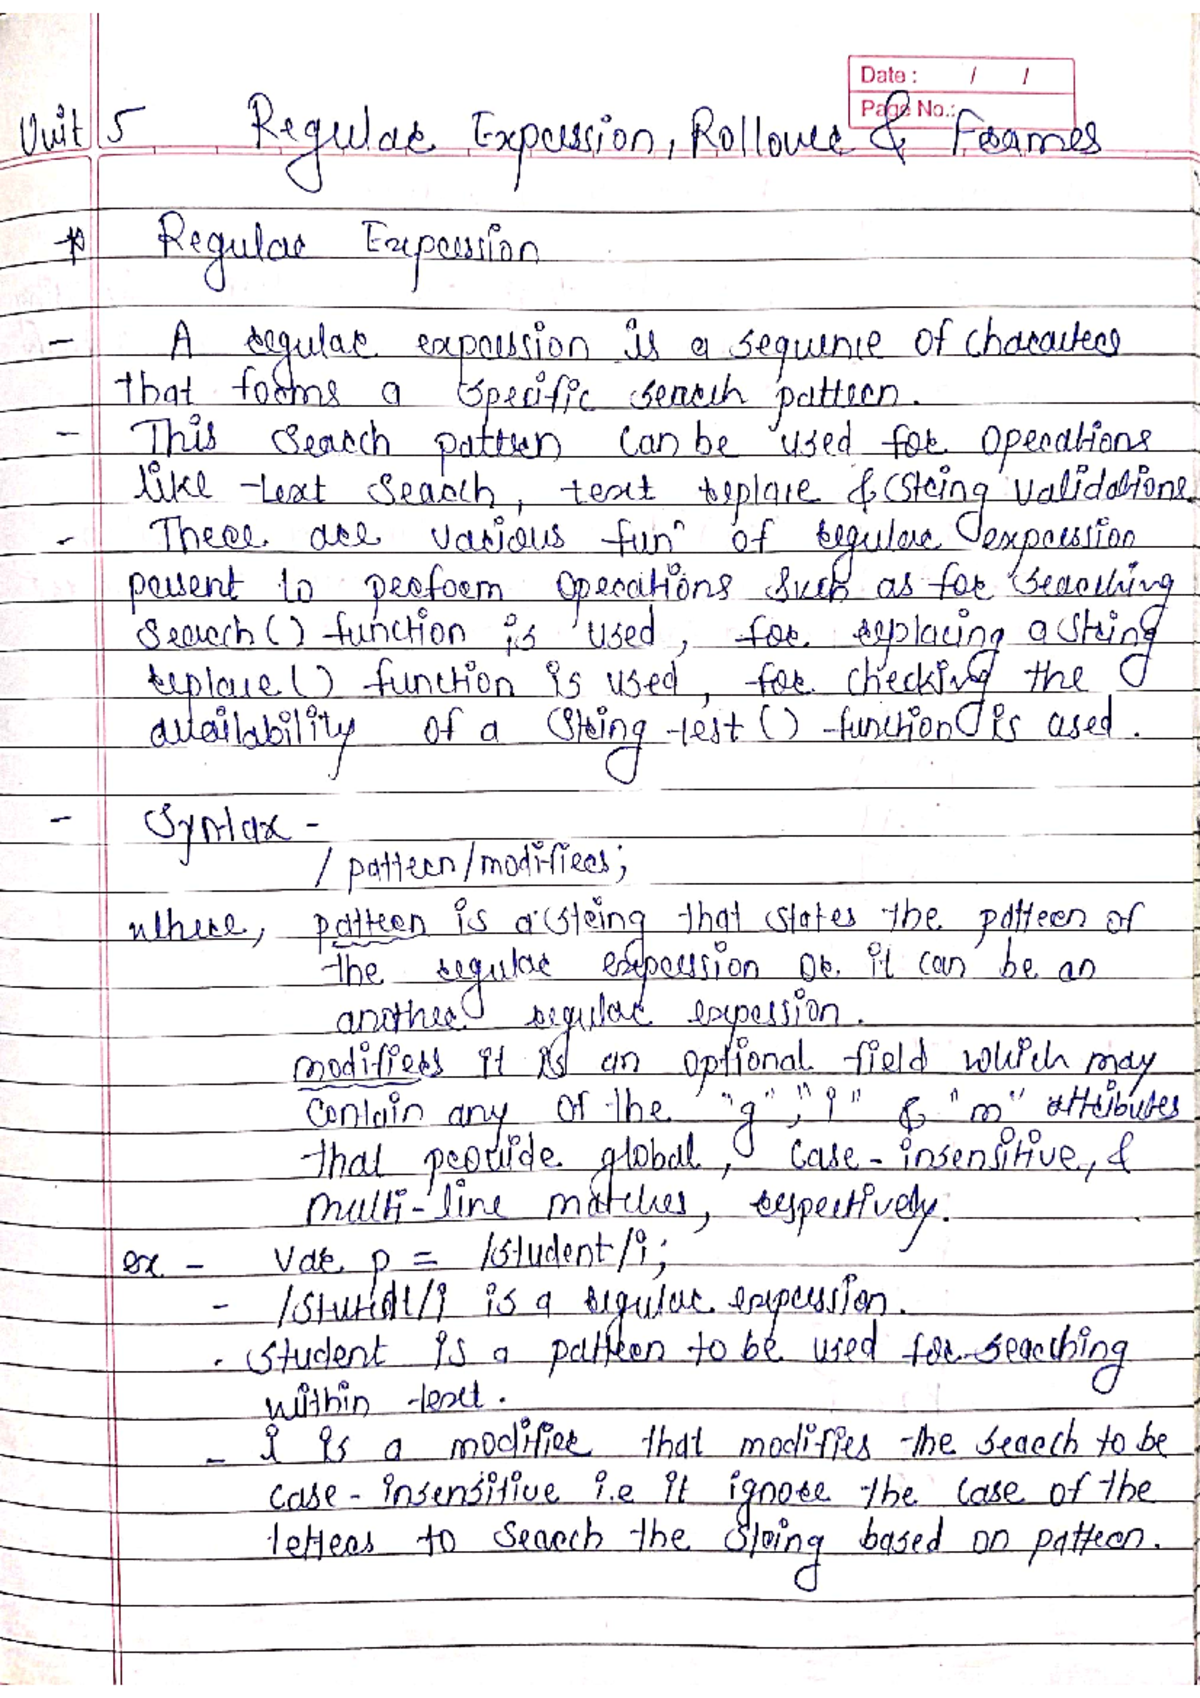 Date : / /
Page No.:
Unit 5 Regular Expression, Rollover & Frames
* Regular Expression
- A regular expression is a sequence of characters
that forms a specific search pattern.
- This search pattern can be used for operations
like text search, text replace & string validations
- There are various funⁿ of regular expression
present to perform operations such as for searching
search() function is used, for replacing a string
replace() function is used, for checking the
availability of a string test() function is used.
- Syntax -
/ pattern/modifiers;
where, pattern is a string that states the pattern of
the regular expression or it can be an
another regular expression.
modifiers it is an optional field which may
contain any of the "g", "i" & "m" attributes
that provide global, case-insensitive, &
multi-line matches, respectively.
ex - Var p = /student/i;
- /student/i is a regular expression.
. student is a pattern to be used for searching
within text.
- i is a modifier that modifies the search to be
case-insensitive i.e it ignore the case of the
letters to search the string based on pattern.